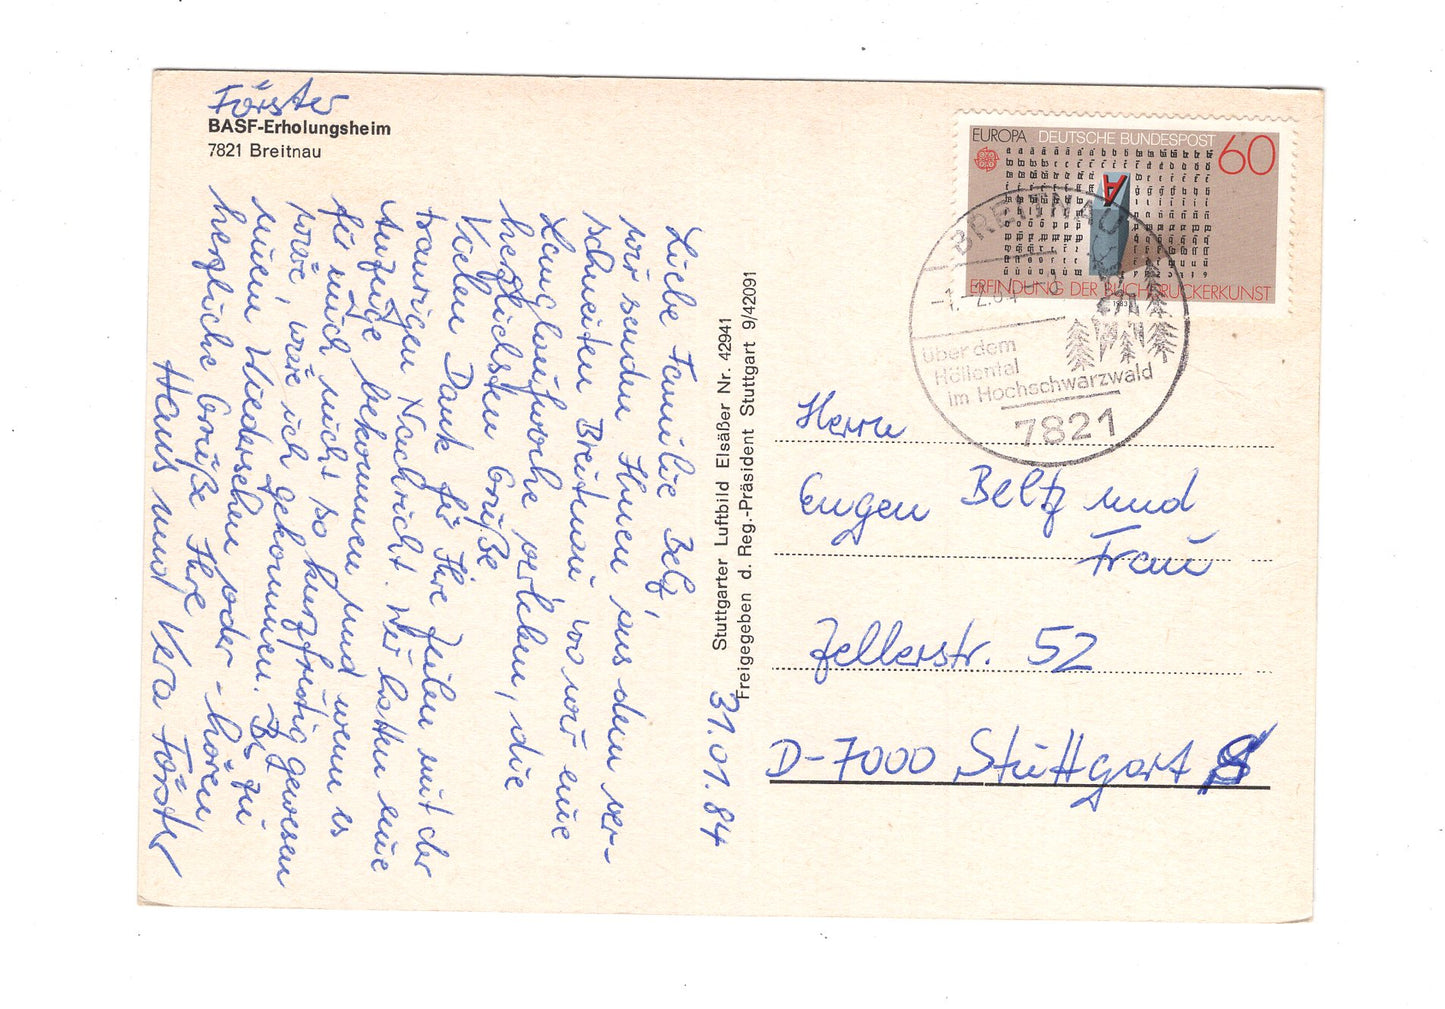 Förster
BASF-Erholungsheim
7821 Breitnau
31.01.84
Liebe Familie Beltz,
wir senden Ihnen aus dem ver-
schneiten Breitnau, wo wir eine
Langlaufwoche verleben, die
herzlichsten Grüße
Vielen Dank für Ihre Zeilen mit der
traurigen Nachricht. Wir hatten eine
Anzeige bekommen und wenn es
für mich nicht so kurzfristig gewesen
wäre, wäre ich gekommen. Bis zu
einem Wiedersehen oder -hören
herzliche Grüße Ihre
Hans und Vera Förster
Stuttgarter Luftbild Elsäßer Nr. 42941
Freigegeben d. Reg.-Präsident Stuttgart 9/42091
EUROPA DEUTSCHE BUNDESPOST 60
ERFINDUNG DER BUCHDRUCKERKUNST
1983
BREITNAU
-1.-2.84
über dem
Höllental
im Hochschwarzwald
7821
Herrn
Eugen Beltz und
Frau
Zellerstr. 52
D-7000 Stuttgart